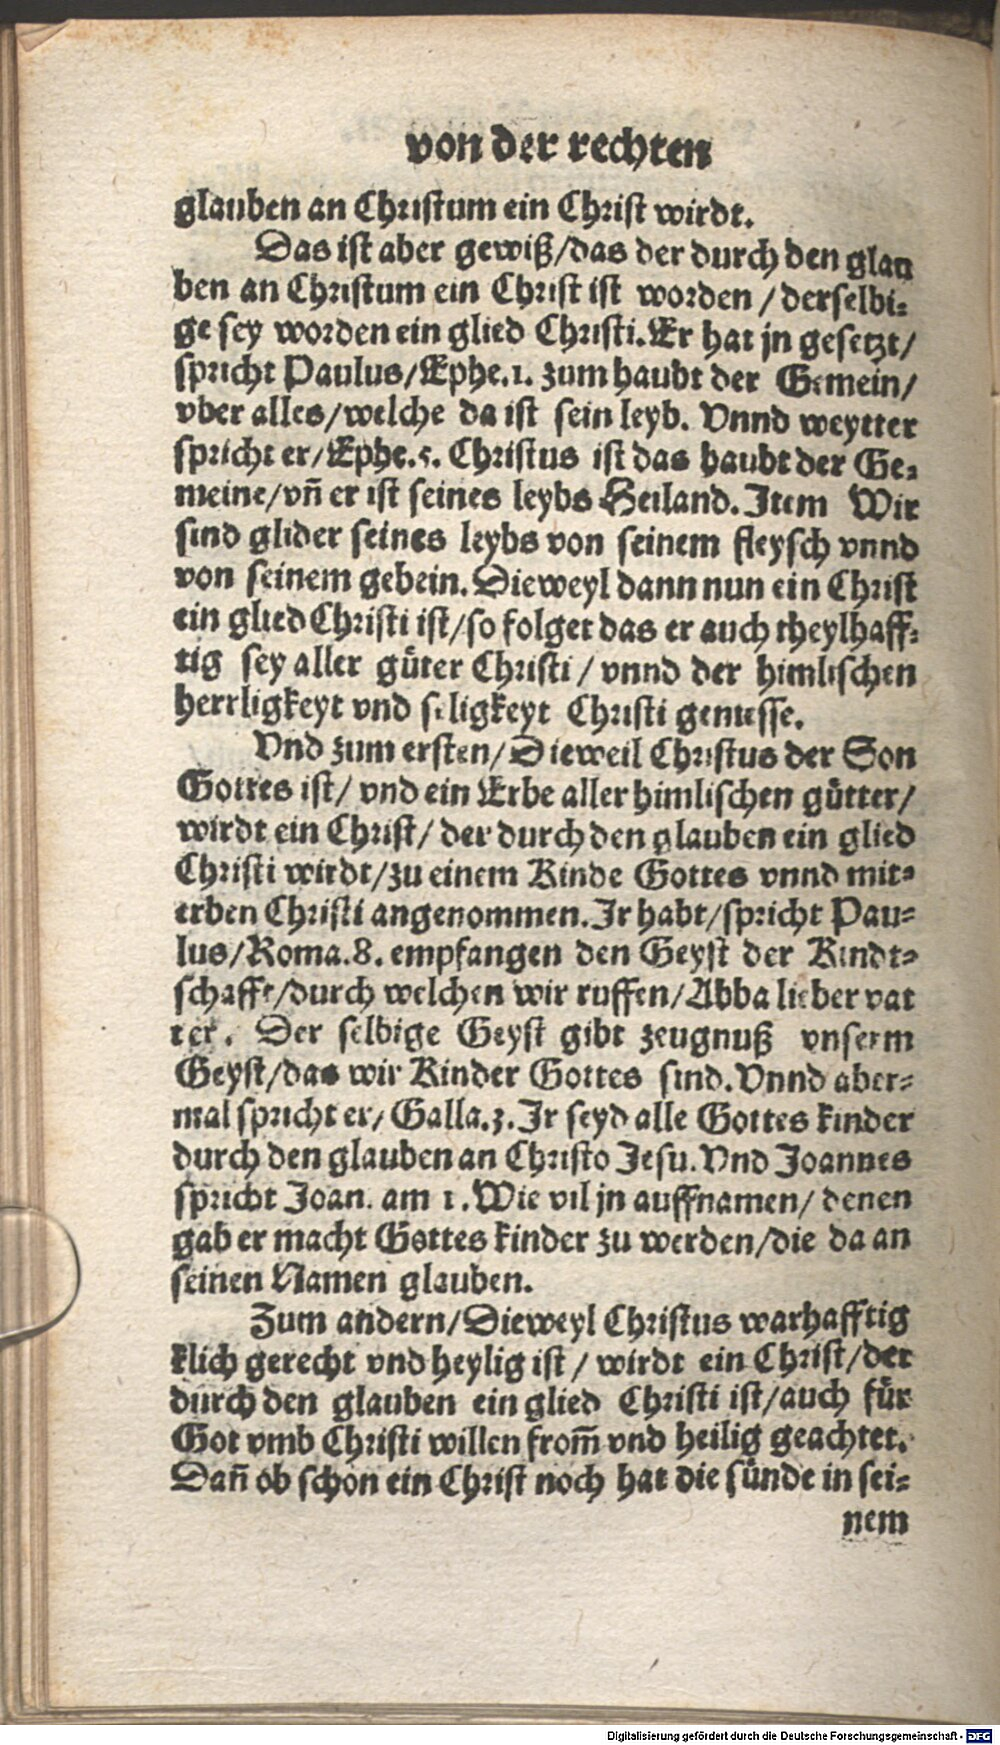 von der rechten
glauben an Christum ein Christ wirdt.
Das ist aber gewiß/das der durch den glau
ben an Christum ein Christ ist worden/derselbi-
ge sey worden ein glied Christi. Er hat jn gesetzt/
spricht Paulus/Ephe.1. zum haubt der Gemein/
vber alles/welche da ist sein leyb. Vnnd weytter
spricht er/Ephe.5. Christus ist das haubt der Ge-
meine/vñ er ist seines leybs Heiland. Item Wir
sind glider seines leybs von seinem fleysch vnnd
von seinem gebein. Dieweyl dann nun ein Christ
ein glied Christi ist/so folget das er auch theylhaff-
tig sey aller güter Christi/vnnd der himlischen
herrligkeyt vnd seligkeyt Christi geniesse.
Vnd zum ersten/Dieweil Christus der Son
Gottes ist/vnd ein Erbe aller himlischen gütter/
wirdt ein Christ/der durch den glauben ein glied
Christi wirdt/zu einem Kinde Gottes vnnd mit-
erben Christi angenommen. Ir habt/spricht Pau-
lus/Roma.8. empfangen den Geyst der Kindt-
schafft/durch welchen wir ruffen/Abba lieber vat
ter. Der selbige Geyst gibt zeugnuß vnserm
Geyst/das wir Kinder Gottes sind. Vnnd aber-
mal spricht er/Galla.3. Ir seyd alle Gottes kinder
durch den glauben an Christo Jesu. Vnd Joannes
spricht Joan. am 1. Wie vil jn auffnamen/denen
gab er macht Gottes kinder zu werden/die da an
seinen Namen glauben.
Zum andern/Dieweyl Christus warhafftig
klich gerecht vnd heylig ist/wirdt ein Christ/der
durch den glauben ein glied Christi ist/auch für
Got vmb Christi willen from̃ vnd heilig geachtet.
Dañ ob schon ein Christ noch hat die sünde in sei-
nem
Digitalisierung gefördert durch die Deutsche Forschungsgemeinschaft - DFG